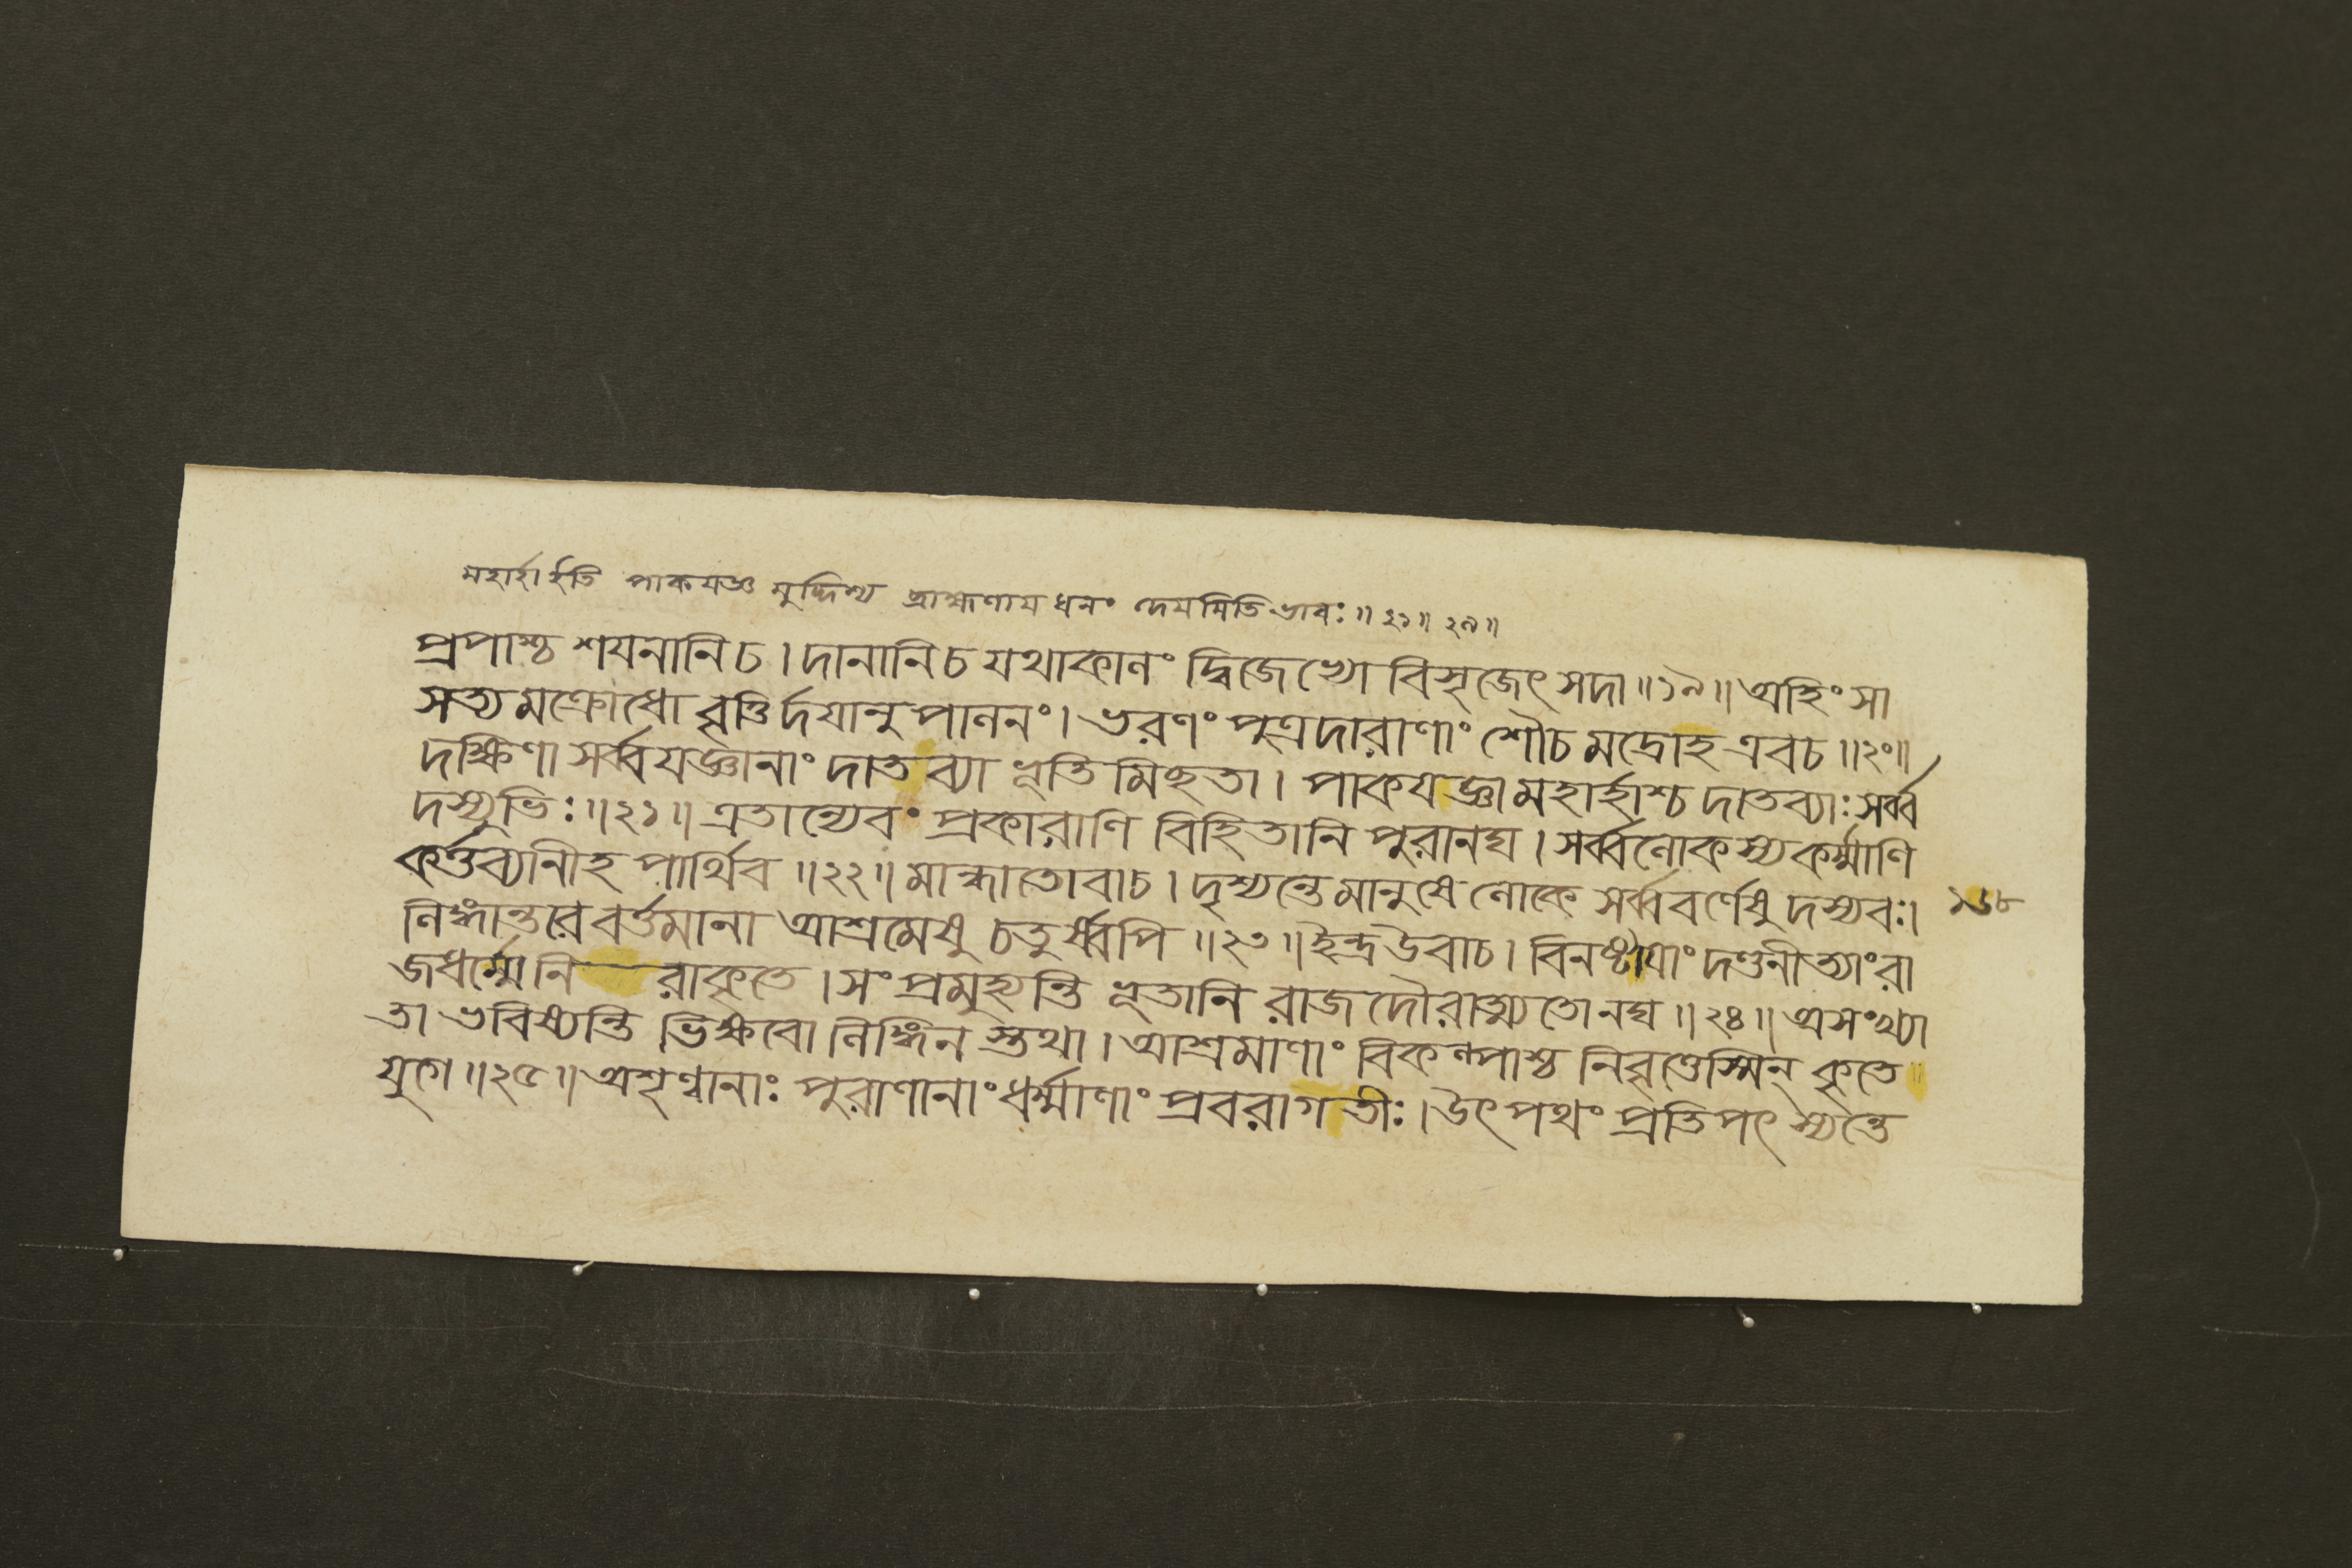 মহার্হা ইতি পাকযজ্ঞ মুদ্দিশ্য ব্রাহ্মণায ধনং দেযমিতিভাবঃ ॥ ২১ ॥ ২৯ ॥
প্রপাশ্চ শযনানি চ । দানানি চ যথাকালং দ্বিজেভ্যো বিসৃজেৎ সদা ॥ ১৯ ॥ অহিংসা
সত্যমক্রোধো বৃত্তির্দযানুপালনং । ভরণং পুত্রদারাণাং শৌচমদ্রোহ এবচ ॥ ২০ ॥
দক্ষিণা সর্ব্বযজ্ঞানাং দাতব্যা ভূতিমিছতা । পাকযজ্ঞা মহার্হাশ্চ দাতব্যাঃ সর্ব্ব
দস্যুভিঃ ॥ ২১ ॥ এতান্যেবং প্রকারাণি বিহিতানি পুরানঘ । সর্ব্বলোকস্য কর্ম্মাণি
কর্ত্তব্যানীহ পার্থিব ॥ ২২ ॥ মান্ধাতোবাচ । দৃশ্যন্তে মানুষে লোকে সর্ব্ববর্ণেষু দস্যবঃ ।
লিঙ্গান্তরে বর্ত্তমানা আশ্রমেষু চতুর্ষ্বপি ॥ ২৩ ॥ ইন্দ্র উবাচ । বিনষ্টাযাং দণ্ডনীত্যাং রা
জধর্ম্মে নিরাকৃতে । সংপ্রমুহ্যন্তি ভূতানি রাজদৌরাত্ম্যতোনঘ ॥ ২৪ ॥ অসংখ্যা
তা ভবিষ্যন্তি ভিক্ষবো লিঙ্গিনস্তথা । আশ্রমাণাং বিকল্পাশ্চ নিবৃত্তেস্মিন্ কৃতে
যুগে ॥ ২৫ ॥ অশৃণ্বানাঃ পুরাণানাং ধর্ম্মাণাং প্রবরা গতীঃ । উৎপথং প্রতিপৎস্যন্তে